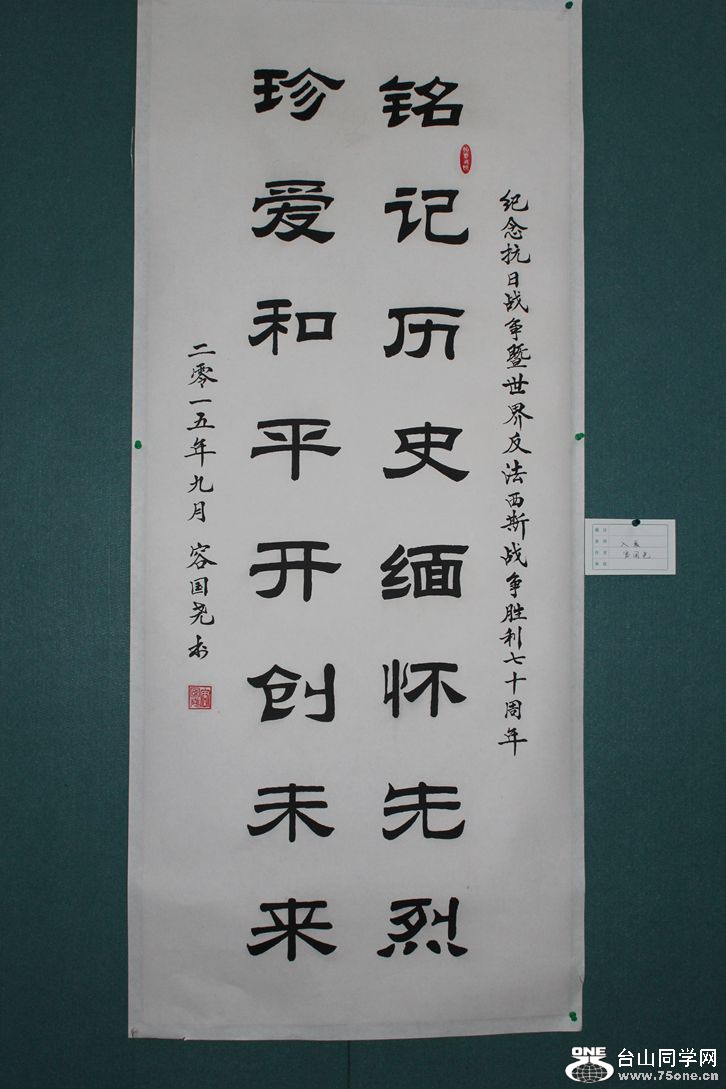 纪念抗日战争暨世界反法西斯战争胜利七十周年
铭记历史缅怀先烈
珍爱和平开创未来
二零一五年九月 容国尧书
入展
容国尧
ONE
台山同学网
www.75one.cn